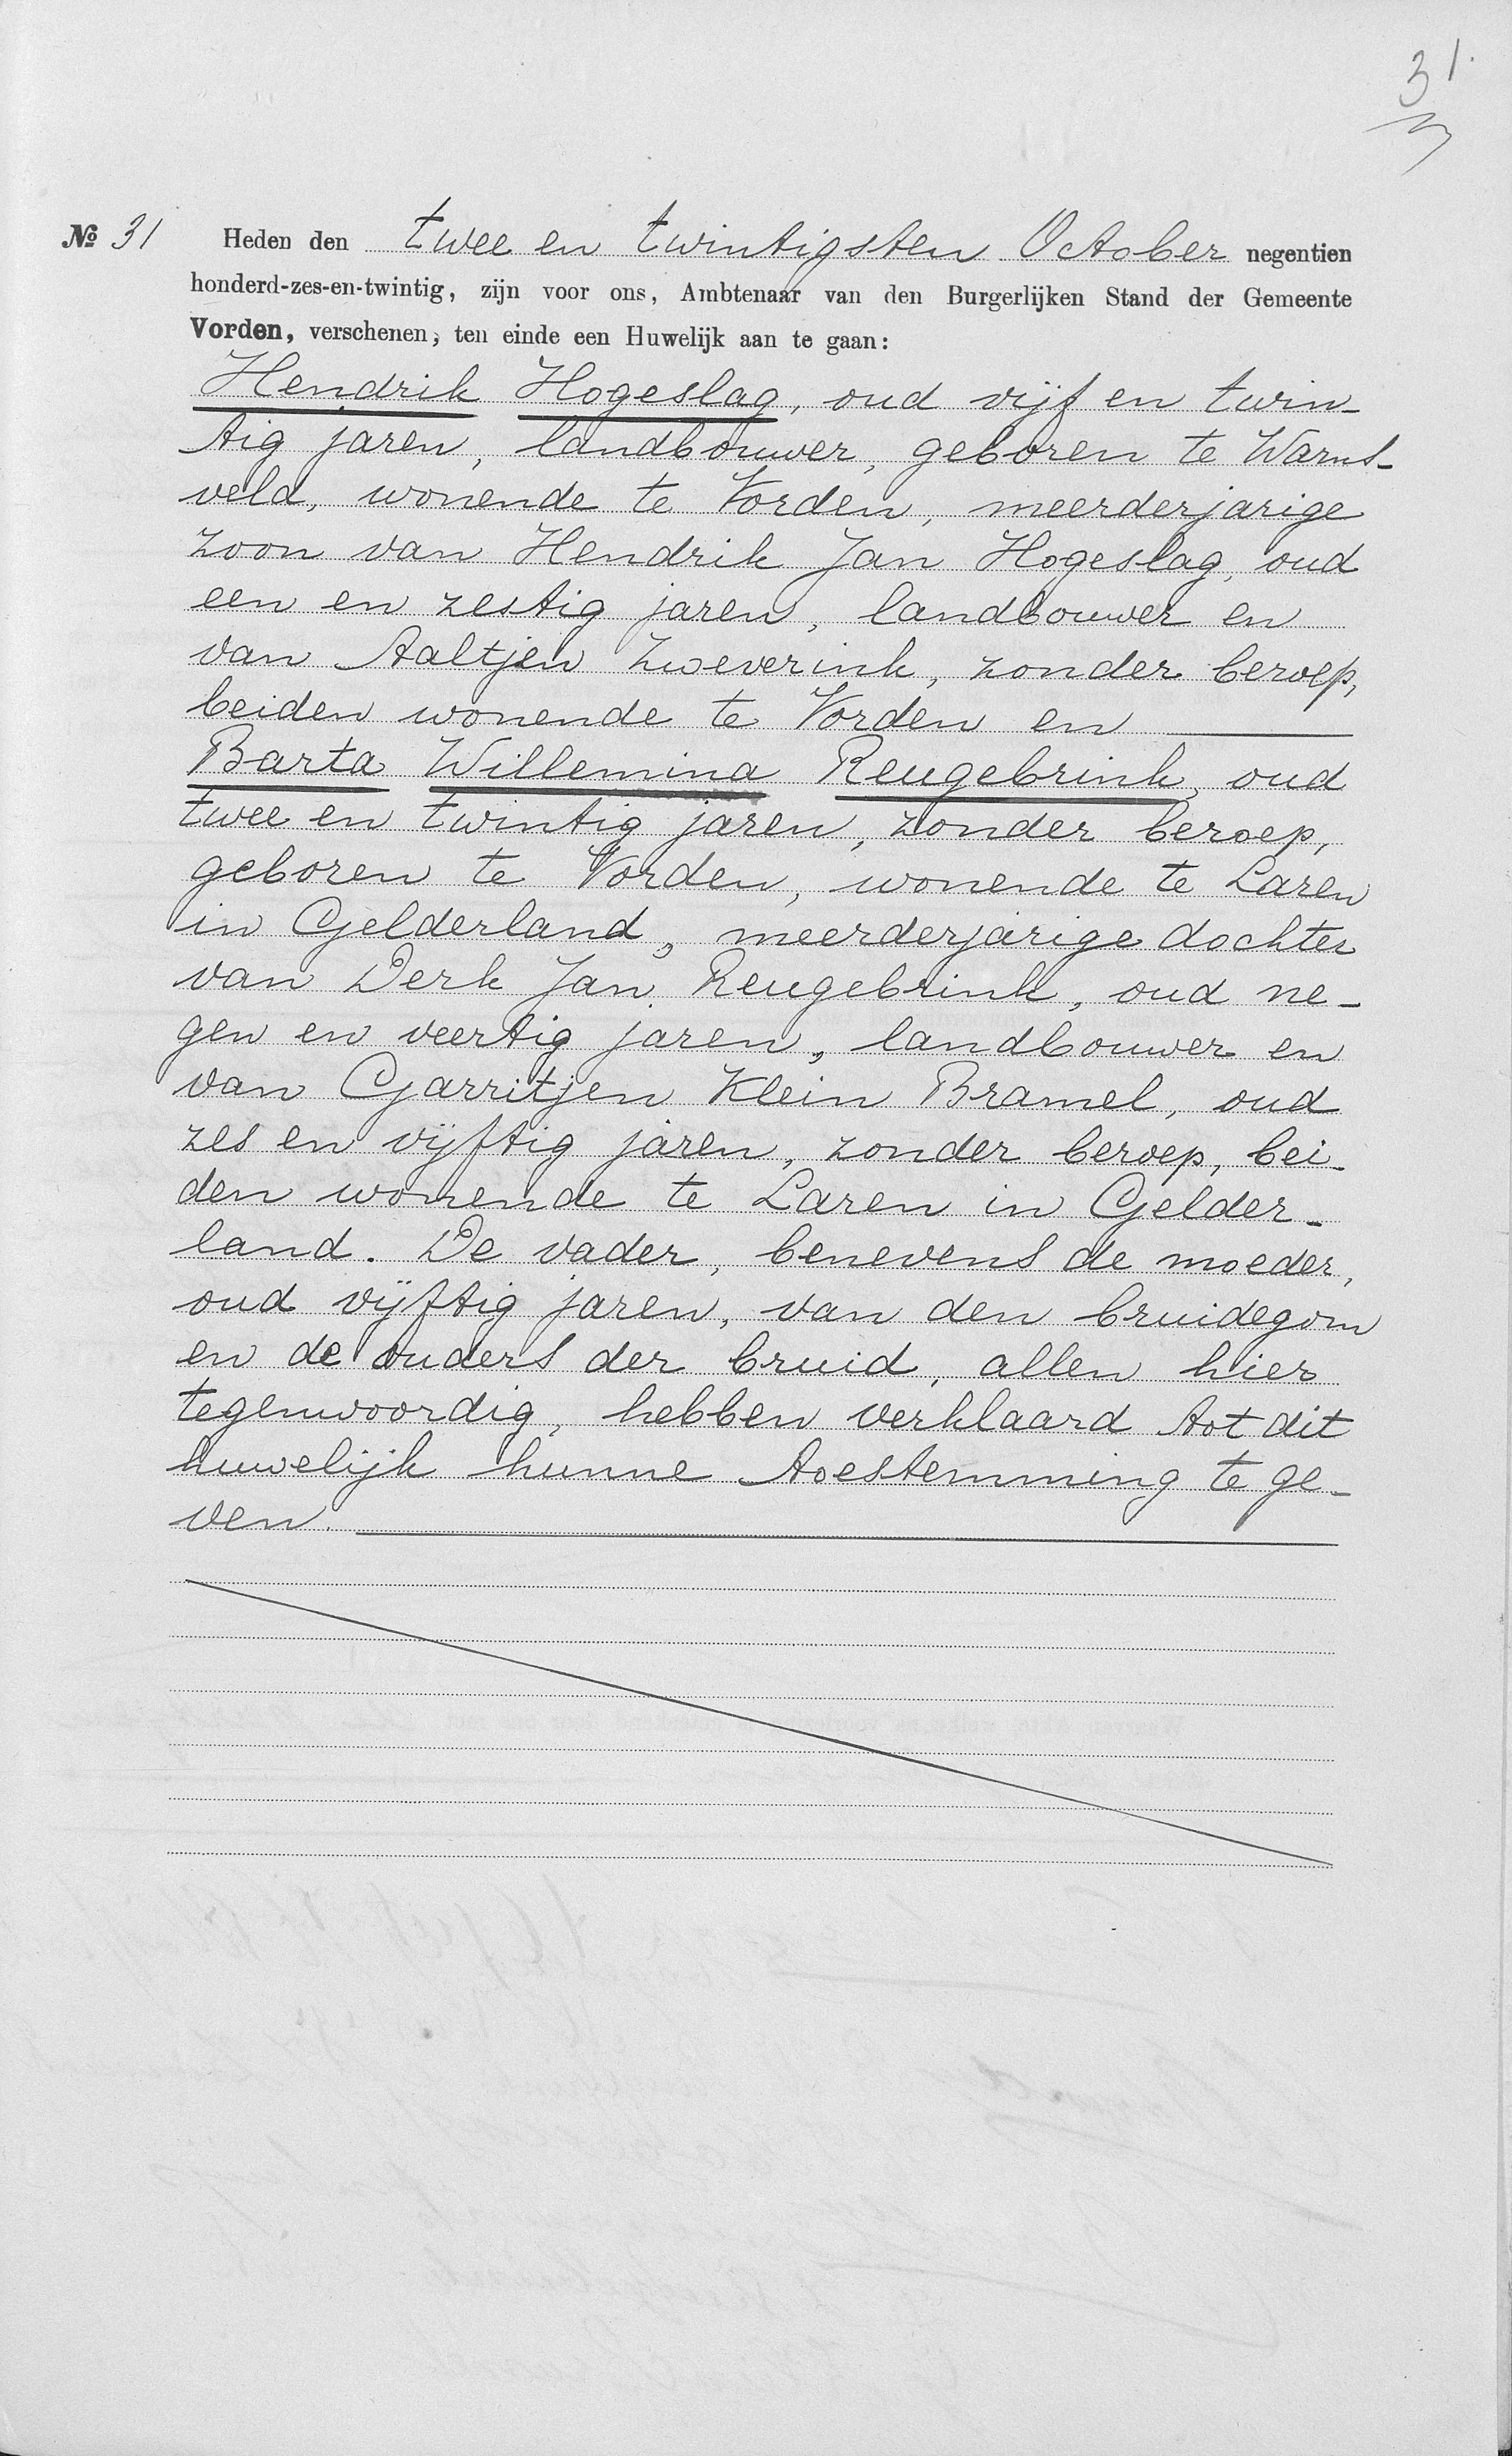 31.
№ 31 Heden den twee en twintigsten October negentien
honderd-zes-en-twintig, zijn voor ons, Ambtenaar van den Burgerlijken Stand der Gemeente
Vorden, verschenen, ten einde een Huwelijk aan te gaan:
Hendrik Hogeslag, oud vijf en twin-
tig jaren, landbouwer, geboren te Warns-
veld, wonende te Vorden, meerderjarige
zoon van Hendrik Jan Hogeslag, oud
een en zestig jaren, landbouwer en
van Aaltjen Zweverink, zonder beroep,
beiden wonende te Vorden en
Barta Willemina Reugebrink, oud
twee en twintig jaren, zonder beroep,
geboren te Vorden, wonende te Laren
in Gelderland, meerderjarige dochter
van Derk Jan Reugebrink, oud ne-
gen en veertig jaren, landbouwer en
van Garritjen Klein Bramel, oud
zes en vijftig jaren, zonder beroep, bei-
den wonende te Laren in Gelder-
land. De vader, benevens de moeder,
oud vijftig jaren, van den bruidegom
en de ouders der bruid, allen hier
tegenwoordig, hebben verklaard tot dit
huwelijk hunne toestemming te ge-
ven.